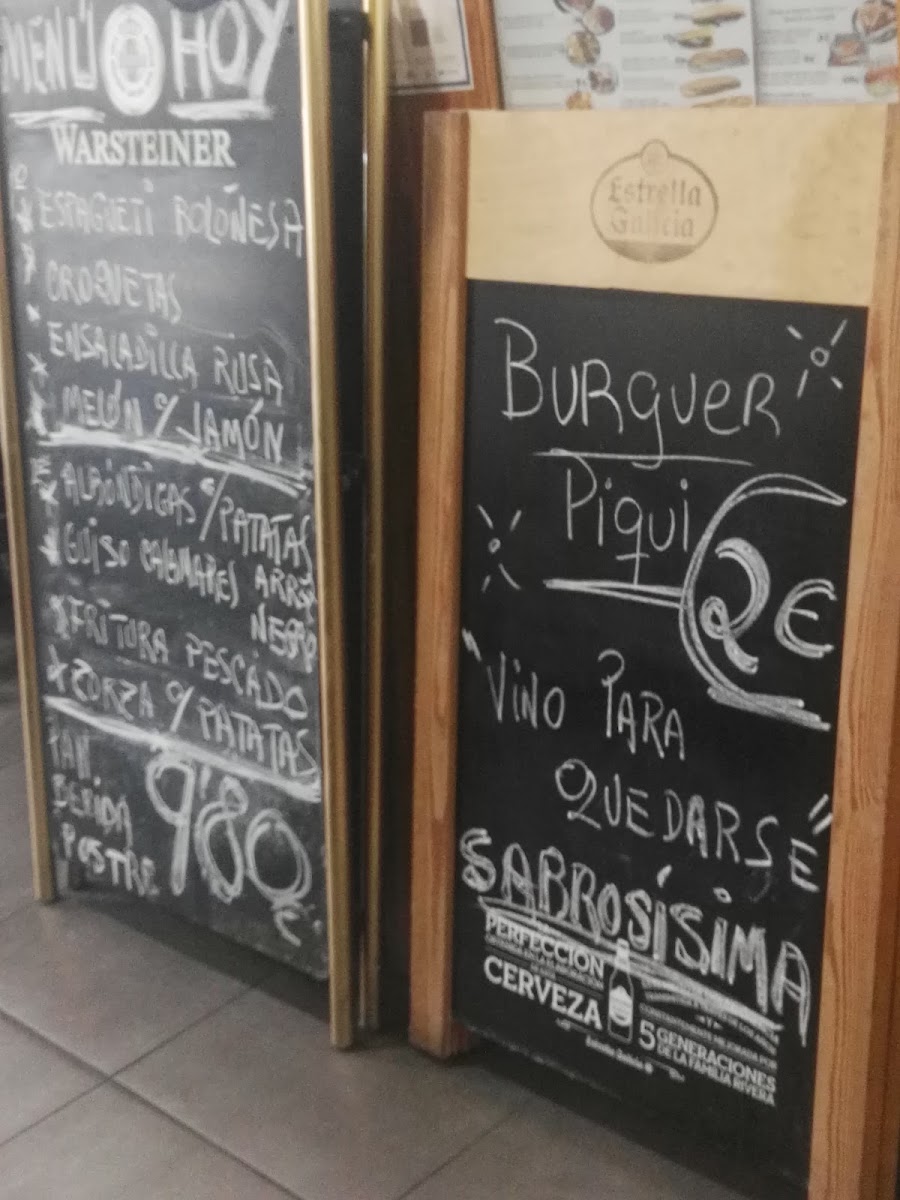 MENÚ HOY
WARSTEINER
ESPAGUETI BOLOÑESA
CROQUETAS
ENSALADILLA RUSA
MELÓN C/ JAMÓN
ALBÓNDIGAS C/ PATATAS
GUISO CALAMARES ARROZ
NEGRO
FRITURA PESCADO
ZORZA C/ PATATAS
PAN
BEBIDA
POSTRE
9'80 €
Estrella
Galicia
BURGUER
PIQUI
2€
"VINO PARA
QUEDARSE"
SABROSÍSIMA
PERFECCIÓN
CERVEZA
CONSTANTEMENTE MEJORADA POR
5 GENERACIONES
DE LA FAMILIA RIVERA
Estrella Galicia